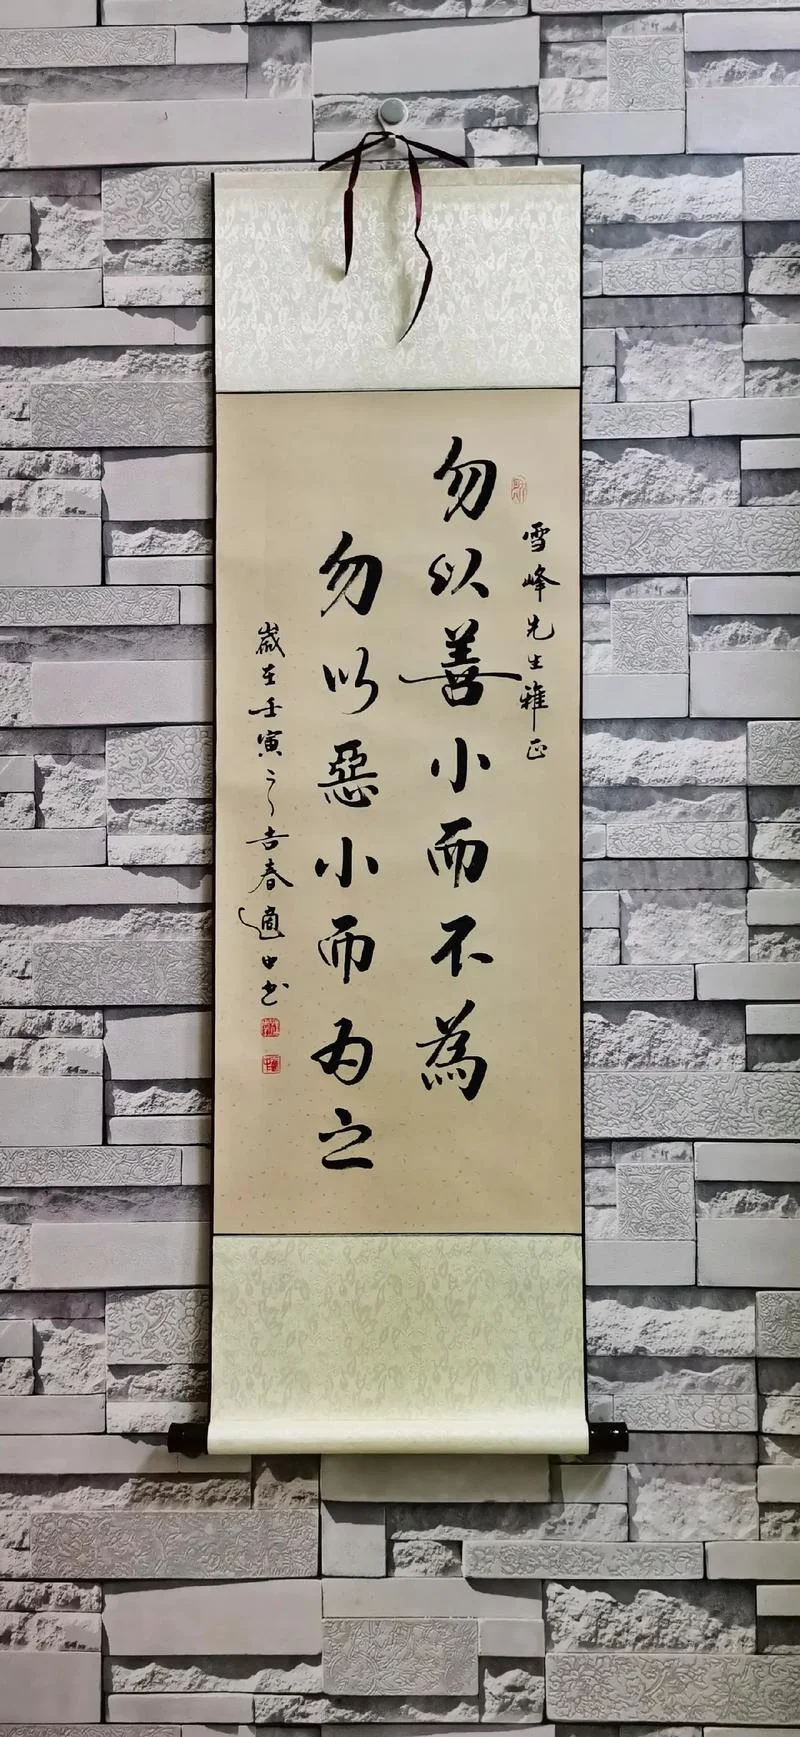 雪峰先生雅正
勿以善小而不為
勿以惡小而为之
歲在壬寅之吉春適中书